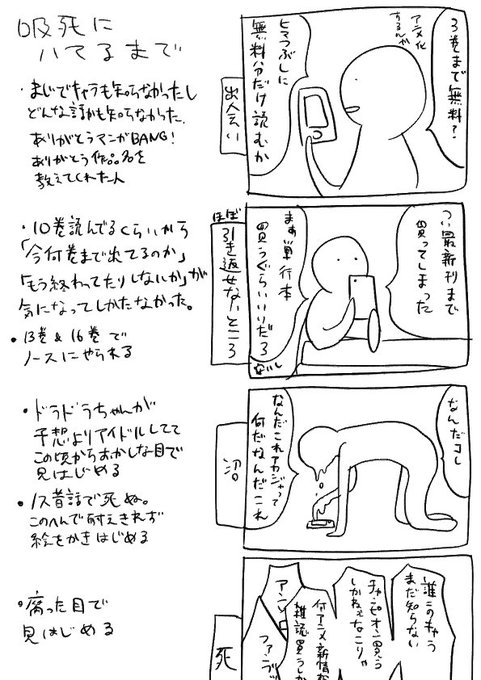 吸死に
ハマるまで
・まじでキャラも知らなかったし
どんな話かも知らなかった.
ありがとうマンガBANG!
ありがとう作品名を
教えてくれた人
3巻まで無料?
アニメ化
するんか
ヒマつぶしに
無料分だけ読むか
出会い
・10巻読んでるくらいから
「今何巻まで出てるのか」
「もう終わってたりしないか」が
気になってしかたなかった。
・13巻&16巻で
ノースにやられる
つい最新刊まで
買ってしまった
まぁ単行本
買うぐらいいいだろ
ないし
ほぼ
引き返せないところ
・ドラドラちゃんが
予想よりアイドルしてて
この頃からおかしな目で
見はじめる
・ノス昔話で死ぬ。
このへんで耐えきれず
絵をかきはじめる
なんだコレ
なんだこれアカジャって
何だなんだこれ
沼
・腐った目で
見はじめる
誰このキャラ
まだ知らない
チャンピオン買う
しかねぇなこりゃ
何アニメ新情報
雑誌買うしか
アニ
ファンブッ
死